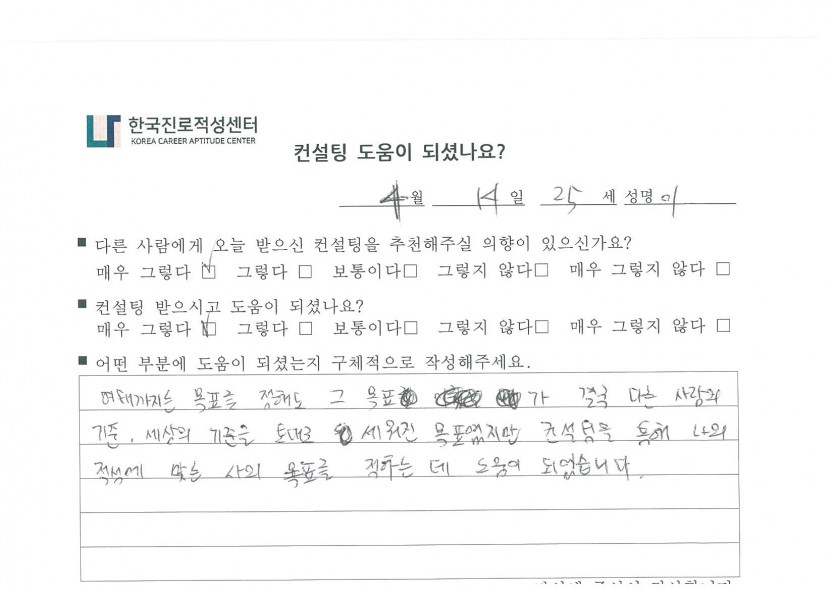 한국진로적성센터
KOREA CAREER APTITUDE CENTER
컨설팅 도움이 되셨나요?
4월 14일 25세 성명 이
■ 다른 사람에게 오늘 받으신 컨설팅을 추천해주실 의향이 있으신가요?
매우 그렇다 ☑ 그렇다 □ 보통이다□ 그렇지 않다□ 매우 그렇지 않다 □
■ 컨설팅 받으시고 도움이 되셨나요?
매우 그렇다 ☑ 그렇다 □ 보통이다□ 그렇지 않다□ 매우 그렇지 않다 □
■ 어떤 부분에 도움이 되셨는지 구체적으로 작성해주세요.
여태까지는 목표를 정해도 그 목표가 결국 다른 사람의
기준, 세상의 기준을 토대로 세워진 목표였지만 컨설팅을 통해 나의
적성에 맞는 나의 목표를 정하는 데 도움이 되었습니다.